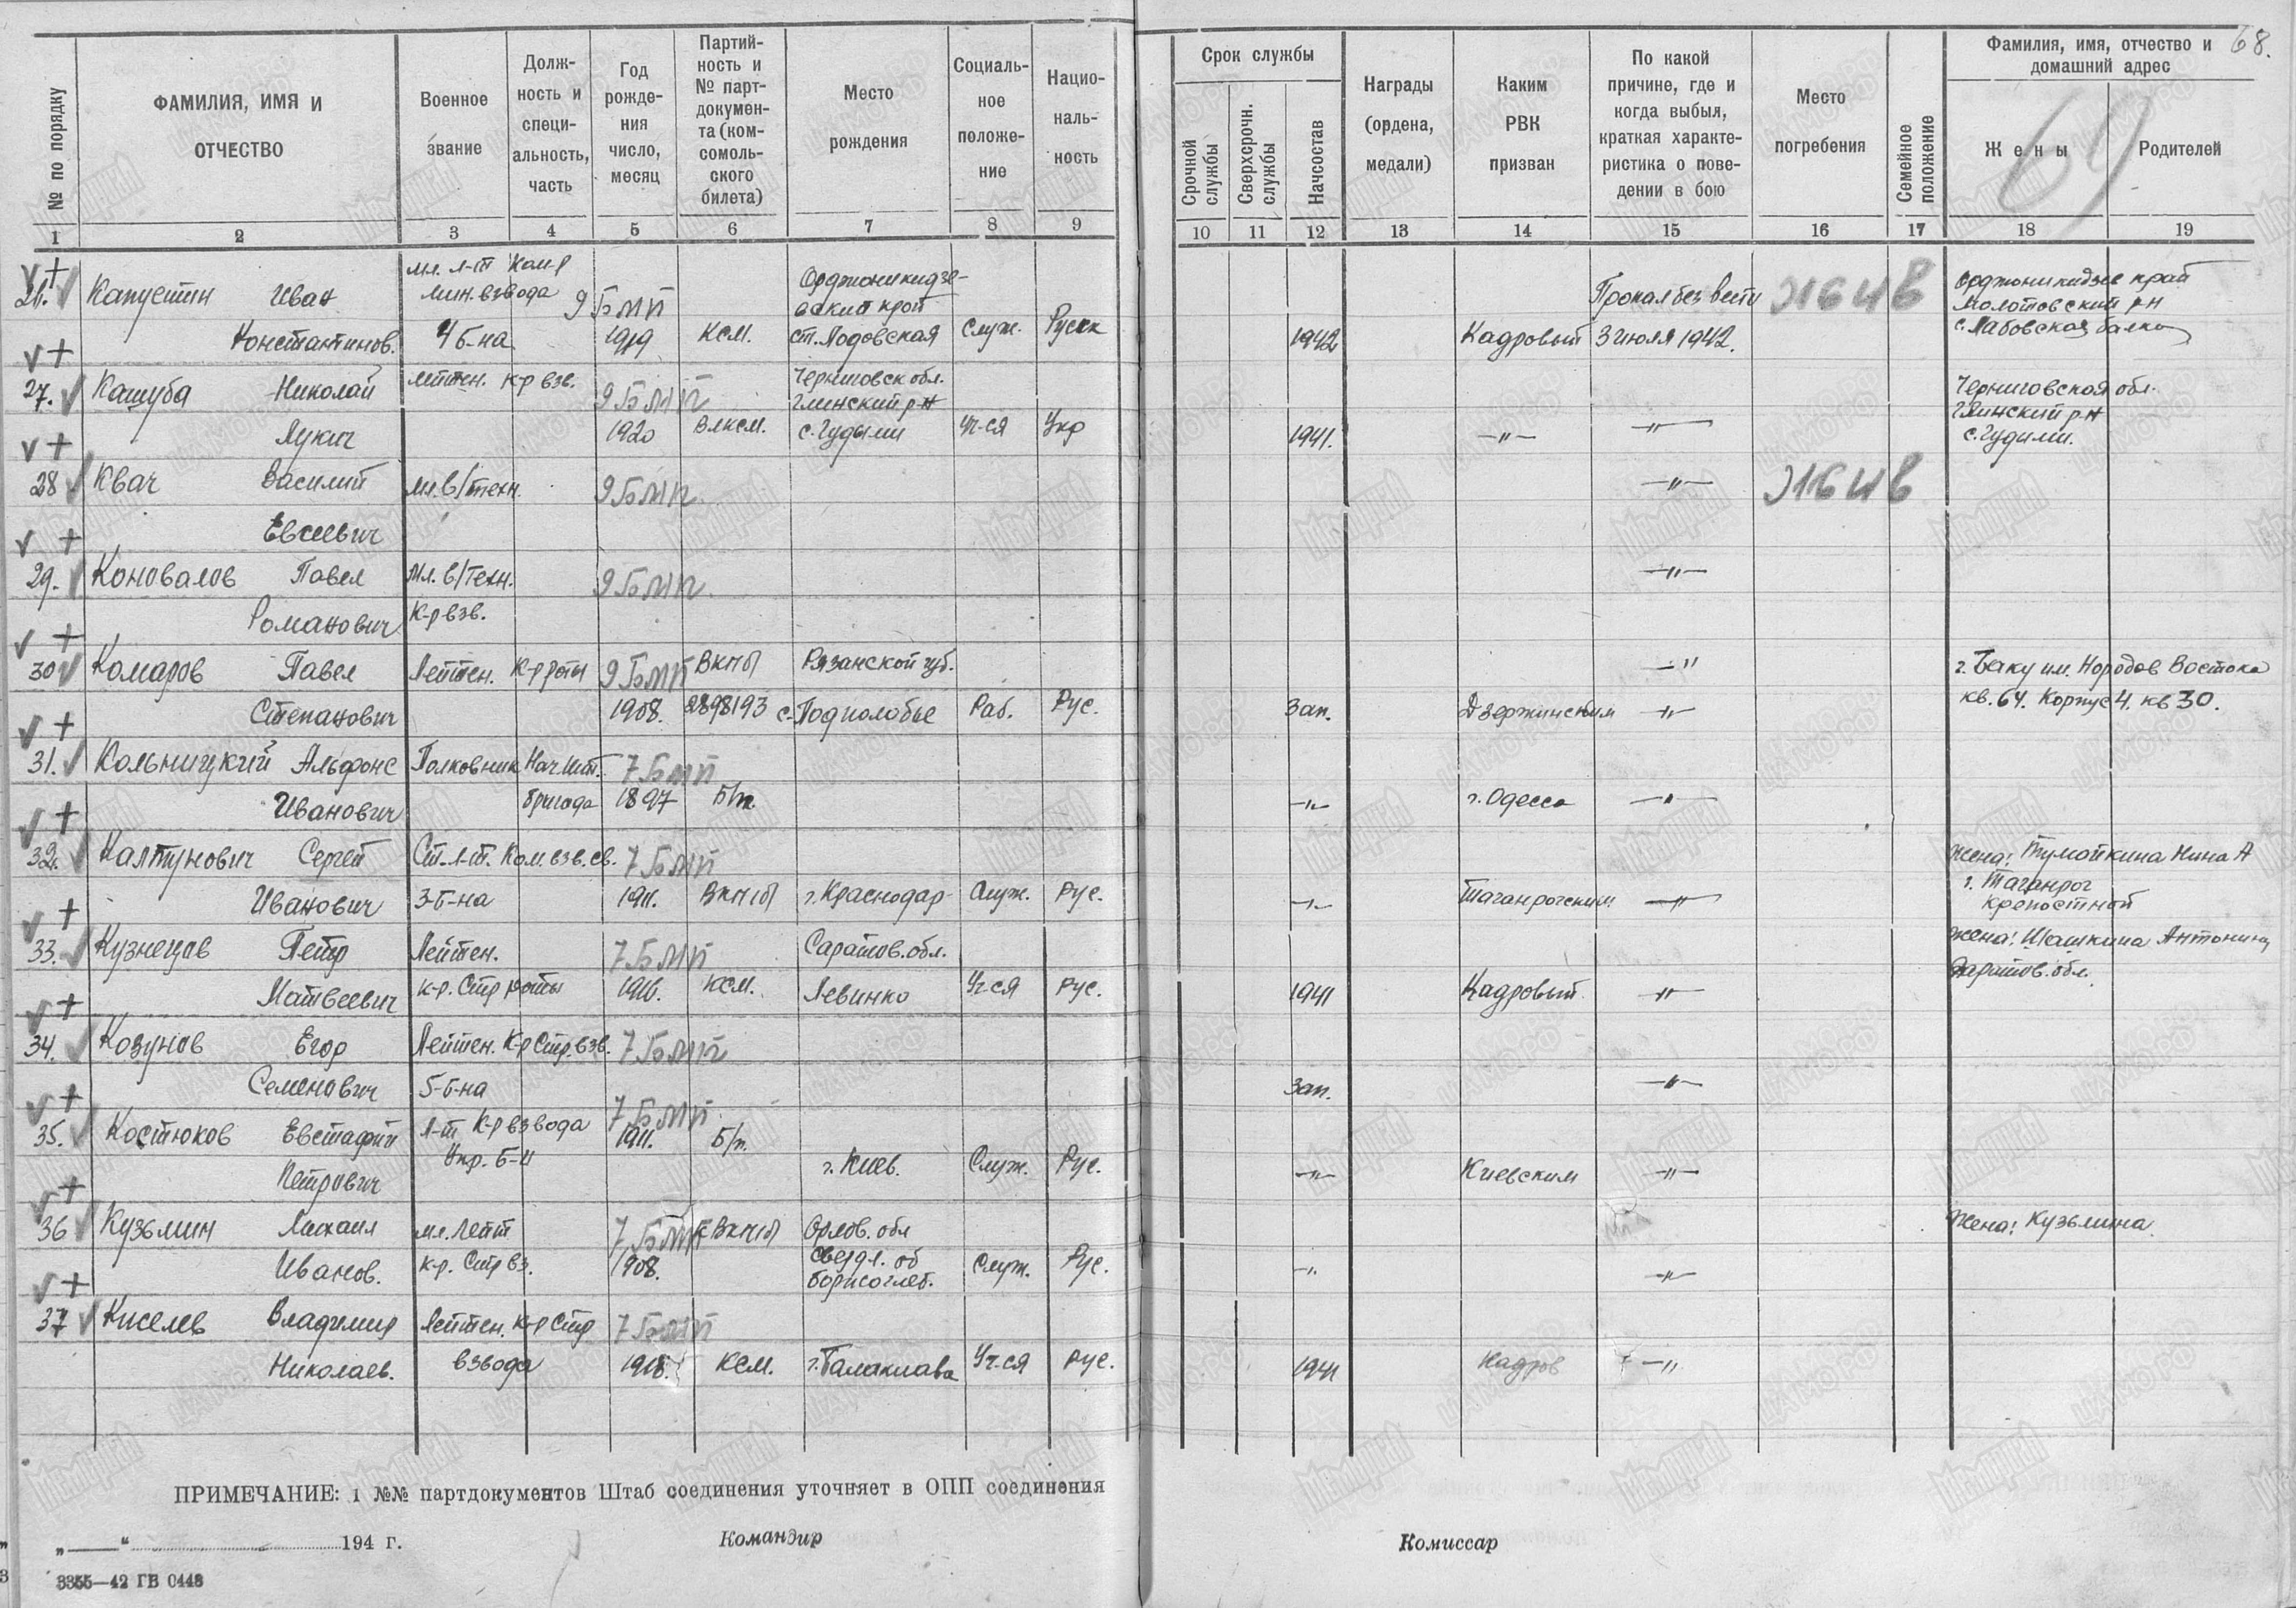 68.
69
№ по порядку
ФАМИЛИЯ, ИМЯ и ОТЧЕСТВО
Военное звание
Долж-
ность и
специ-
альность,
часть
Год
рожде-
ния
число,
месяц
Партий-
ность и
№ парт-
докумен-
та (ком-
сомоль-
ского
билета)
Место
рождения
Социаль-
ное
положе-
ние
Нацио-
наль-
ность
Срок службы
Срочной службы
Сверхсрочн. службы
Начсостав
Награды
(ордена,
медали)
Каким
РВК
призван
По какой
причине, где и
когда выбыл,
краткая характе-
ристика о пове-
дении в бою
Место
погребения
Семейное положение
Фамилия, имя, отчество и
домашний адрес
Жены
Родителей
1 2 3 4 5 6 7 8 9 10 11 12 13 14 15 16 17 18 19
26. Капустин Иван мл. л-т Ком-р 9 БМП Орджоникидзе- Пропал без вести жив Орджоникидзев край
мин. взвода вский край Молотовский р-н
Константинов. 4 б-на 1919 Ксм. ст. Лодовская Служ. Русск 1942 Кадровый 3 июля 1942. с. Лабовская балка
27. Кашуба Николай лейтен. к-р взв. 9 БМП Черниговск обл. Черниговская обл.
Глинский р-н Глинский р-н
Лукич 1920 Влксм. с. Гудыми Уч-ся Укр 1941. —"— —"— с. Гудыми.
28 Квач Василий мл. в/техн. 9 БМП —"— жив
Евсеевич
29. Коновалов Павел мл. в/техн. 9 БМП. —"—
Романович К-р взв.
30 Комаров Павел Лейтен. К-р роты 9 БМП ВКПб Рязанской губ. —" г. Баку им. Народов Востока
Степанович 1908. 2898193 с. Подполобье Раб. Рус. Зап. Дзержинским —"— кв. 64. Корпус 4. кв 30.
31. Кольницкий Альфонс Полковник Нач. шт. 7 БМП
Иванович бригада 1897 Б/п. —"— г. Одесса —"—
32. Калтунович Сергей Ст. л-т. Ком взв. св. 7 БМП жена: Тумайкина Нина А
Иванович 3-б-на 1911. ВКПб г. Краснодар Служ. Рус. —"— Таганрогским —"— г. Таганрог
крепостной
33. Кузнецов Петр Лейтен. 7 БМП Саратов. обл. жена: Шашкина Антонина
Матвеевич к-р. Стр роты 1916. КСМ. Левинко Уч-ся Рус. 1941 Кадровый —"— Саратов. обл.
34. Козунов Егор Лейтен. К-р Стр. взв. 7 БМП
Семенович 5-б-на Зап. —"—
35. Костюков Евстафий л-т К-р взвода 7 БМП
1911. Б/п.
Петрович Упр. б-и г. Киев. Служ. Рус. —"— Киевским —"—
36 Кузьмин Михаил мл. лейт 7 БМП ВКПб Орлов. обл Жена: Кузьмина.
Иванов. к-р. Стр вз. 1908. Свердл. об Служ. Рус. —". —"—
борисоглеб.
37 Киселев Владимир Лейтен. К-р Стр 7 БМП
Николаев. взвода 1918. КСМ. г. Балаклава Уч-ся рус. 1941 Кадров —"
ПРИМЕЧАНИЕ: 1 №№ партдокументов Штаб соединения уточняет в ОПП соединения
„——“ 194 г. Командир Комиссар
3355—42 ГВ 0448